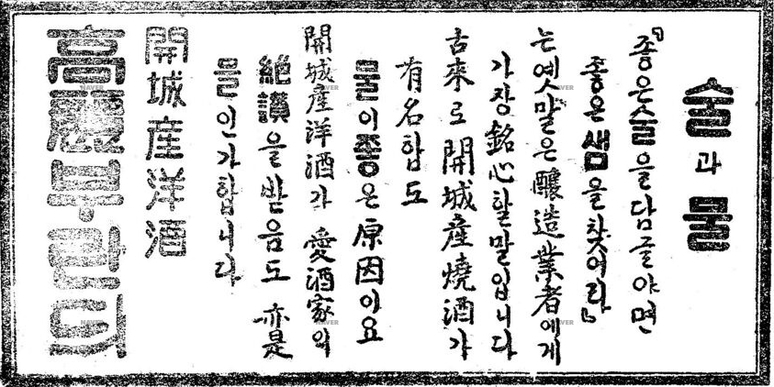 술과 물
『좋은술을담글야면
좋은샘을찾어라』
는옛말은釀造業者에게
가장銘心할말입니다
古來로開城産燒酒가
有名합도
물이좋은原因이요
開城産洋酒가 愛酒家의
絶讚을받음도 亦是
물인가합니다
開城産洋酒
高麗부란듸